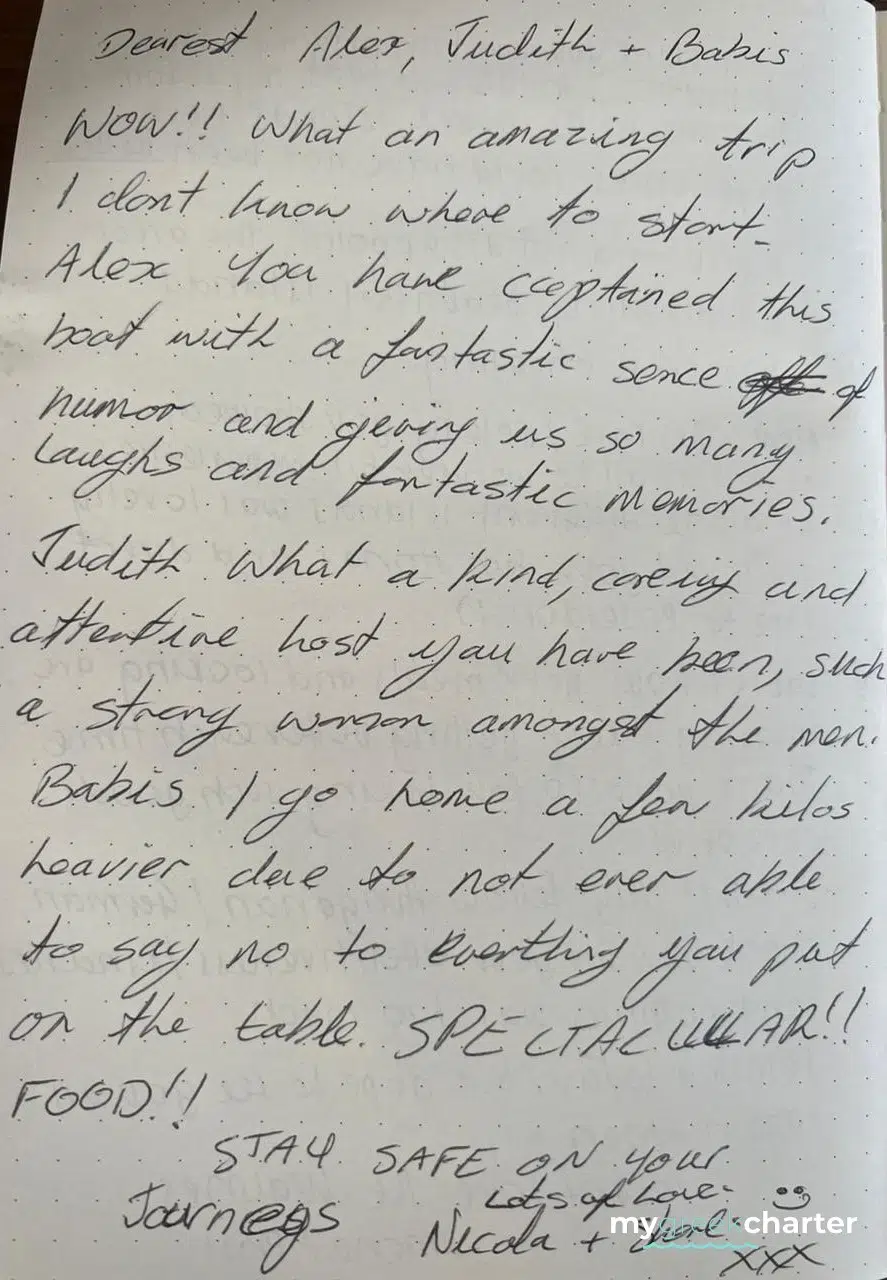 Dearest Alex, Judith + Babis
WOW!! What an amazing trip
I dont know where to start.
Alex You have captained this
boat with a fantastic sence of
humor and geving us so many
Laughs and fantastic memories.
Judith What a kind, careing and
attentive host you have been, such
a strong woman amongst the men.
Babis I go home a few kilos
heavier due to not ever able
to say no to everthing you put
on the table. SPECTACULAR!!
FOOD!!
STAY SAFE ON YOUR
Journeys
Lots of Love
Nicola +
XXX
mygreekcharter